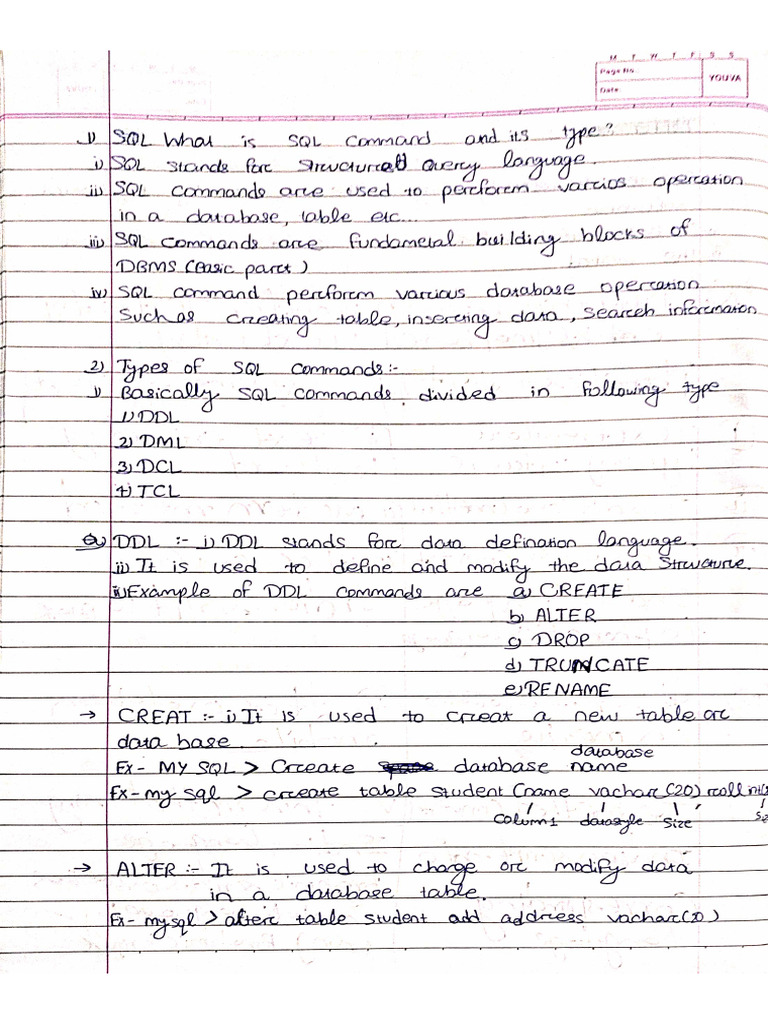 M T W T F S S
Page No.
Date
YOUVA
1) SQL What is SQL command and its type?
i) SQL stands for structured Query language.
ii) SQL commands are used to perform varcios opercation
in a database, table etc...
iii) SQL commands are fundametal building blocks of
DBMS (Basic parct)
iv) SQL command percforcm varcious database opercation
Such as Crceating table, insercting data, Search inforcmation
2) Types of SQL commands:-
1) Basically SQL commands divided in following type
1) DDL
2) DML
3) DCL
4) TCL
DDL :- i) DDL stands forc data defination language.
ii) It is used to define and modify the data Structurce.
Example of DDL commands arce a) CREATE
b) ALTER
c) DROP
d) TRUNCATE
e) RENAME
→ CREAT :- i) It is used to crceat a new table orc
data base.
Ex- MY SQL > Crceate database database name
Ex- my sql > crceate table student (name vachar(20) rcoll int(
column1 size
→ ALTER :- It is used to change orc modify data
in a database table.
Ex- mysql > alterc table student add address vachar(20)